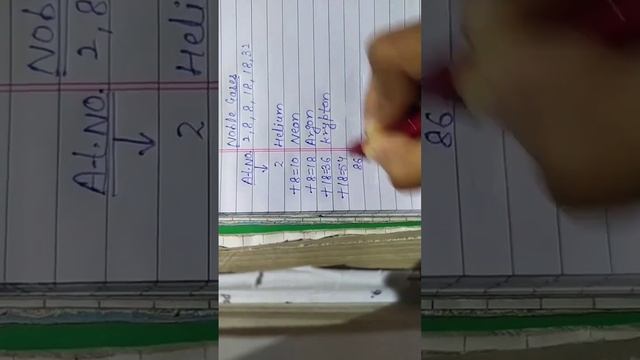 Noble Gases
At.No. 2,8,8,18,18,32
↓
2 Helium
+8=10 Neon
+8=18 Argon
+18=36 Krypton
+18=54
86